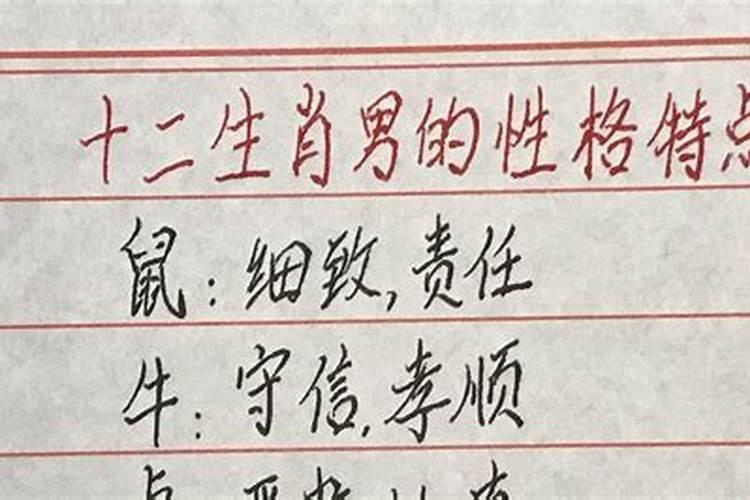 十二生肖男的性格特点
鼠:细致,责任
牛:守信,孝顺